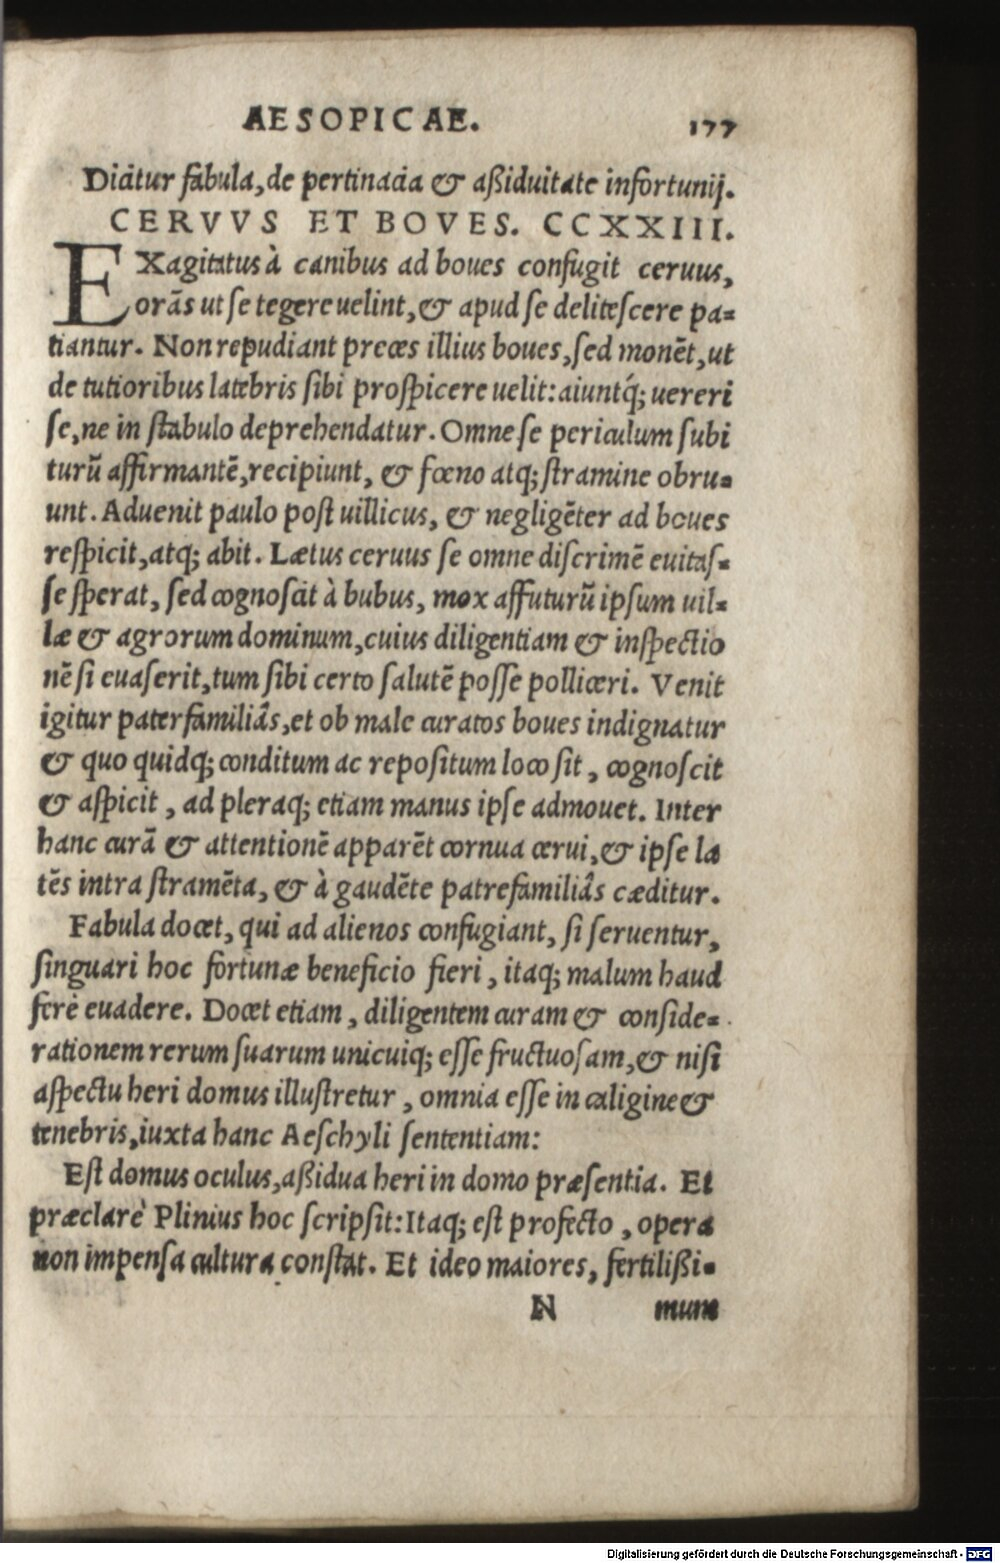 AESOPICAE. 177
Dicitur fabula, de pertinacia & aßiduitate infortunij.
CERVVS ET BOVES. CCXXIII.
EXagitatus à canibus ad boues confugit ceruus,
orãs ut se tegere uelint, & apud se delitescere pa=
tiantur. Non repudiant preces illius boues, sed monẽt, ut
de tutioribus latebris sibi prospicere uelit: aiuntq́; uereri
se, ne in stabulo deprehendatur. Omne se periculum subi
turũ affirmantẽ, recipiunt, & fœno atq; stramine obru=
unt. Aduenit paulo post uillicus, & negligẽter ad boues
respicit, atq; abit. Lætus ceruus se omne discrimẽ euitas=
se sperat, sed cognoscit à bubus, mox affuturũ ipsum uil=
læ & agrorum dominum, cuius diligentiam & inspectio
nẽ si euaserit, tum sibi certo salutẽ posse polliceri. Venit
igitur paterfamiliâs, et ob male curatos boues indignatur
& quo quidq; conditum ac repositum loco sit, cognoscit
& aspicit, ad pleraq; etiam manus ipse admouet. Inter
hanc curã & attentionẽ apparẽt cornua cerui, & ipse la
tẽs intra stramẽta, & à gaudẽte patrefamiliâs cæditur.
Fabula docet, qui ad alienos confugiant, si seruentur,
singuari hoc fortunæ beneficio fieri, itaq; malum haud
ferè euadere. Docet etiam, diligentem curam & conside=
rationem rerum suarum unicuiq; esse fructuosam, & nisi
aspectu heri domus illustretur, omnia esse in caligine &
tenebris, iuxta hanc Aeschyli sententiam:
Est domus oculus, aßidua heri in domo præsentia. Et
præclarè Plinius hoc scripsit: Itaq; est profecto, opera
non impensa cultura constat. Et ideo maiores, fertilißi=
N mum
Digitalisierung gefördert durch die Deutsche Forschungsgemeinschaft - DFG